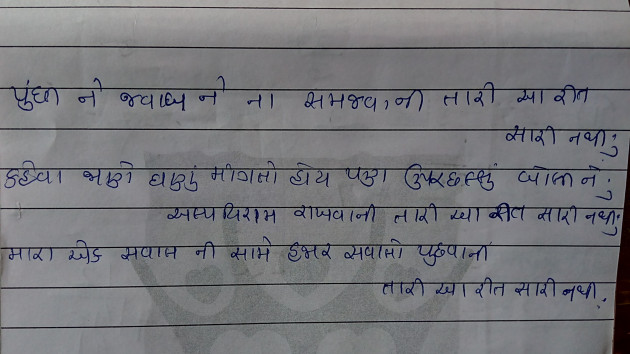 પુછી ને જવાબ ને ના સમજવાની તારી આ રીત
સારી નથી;
કહેવા જાણે ઘણું માંગતો હોય પણ ઉપરછલ્લું બોલીને;
અલ્પવિરામ રાખવાની તારી આ રીત સારી નથી;
મારા એક સવાલ ની સામે હજાર સવાલો પુછવાની
તારી આ રીત સારી નથી.